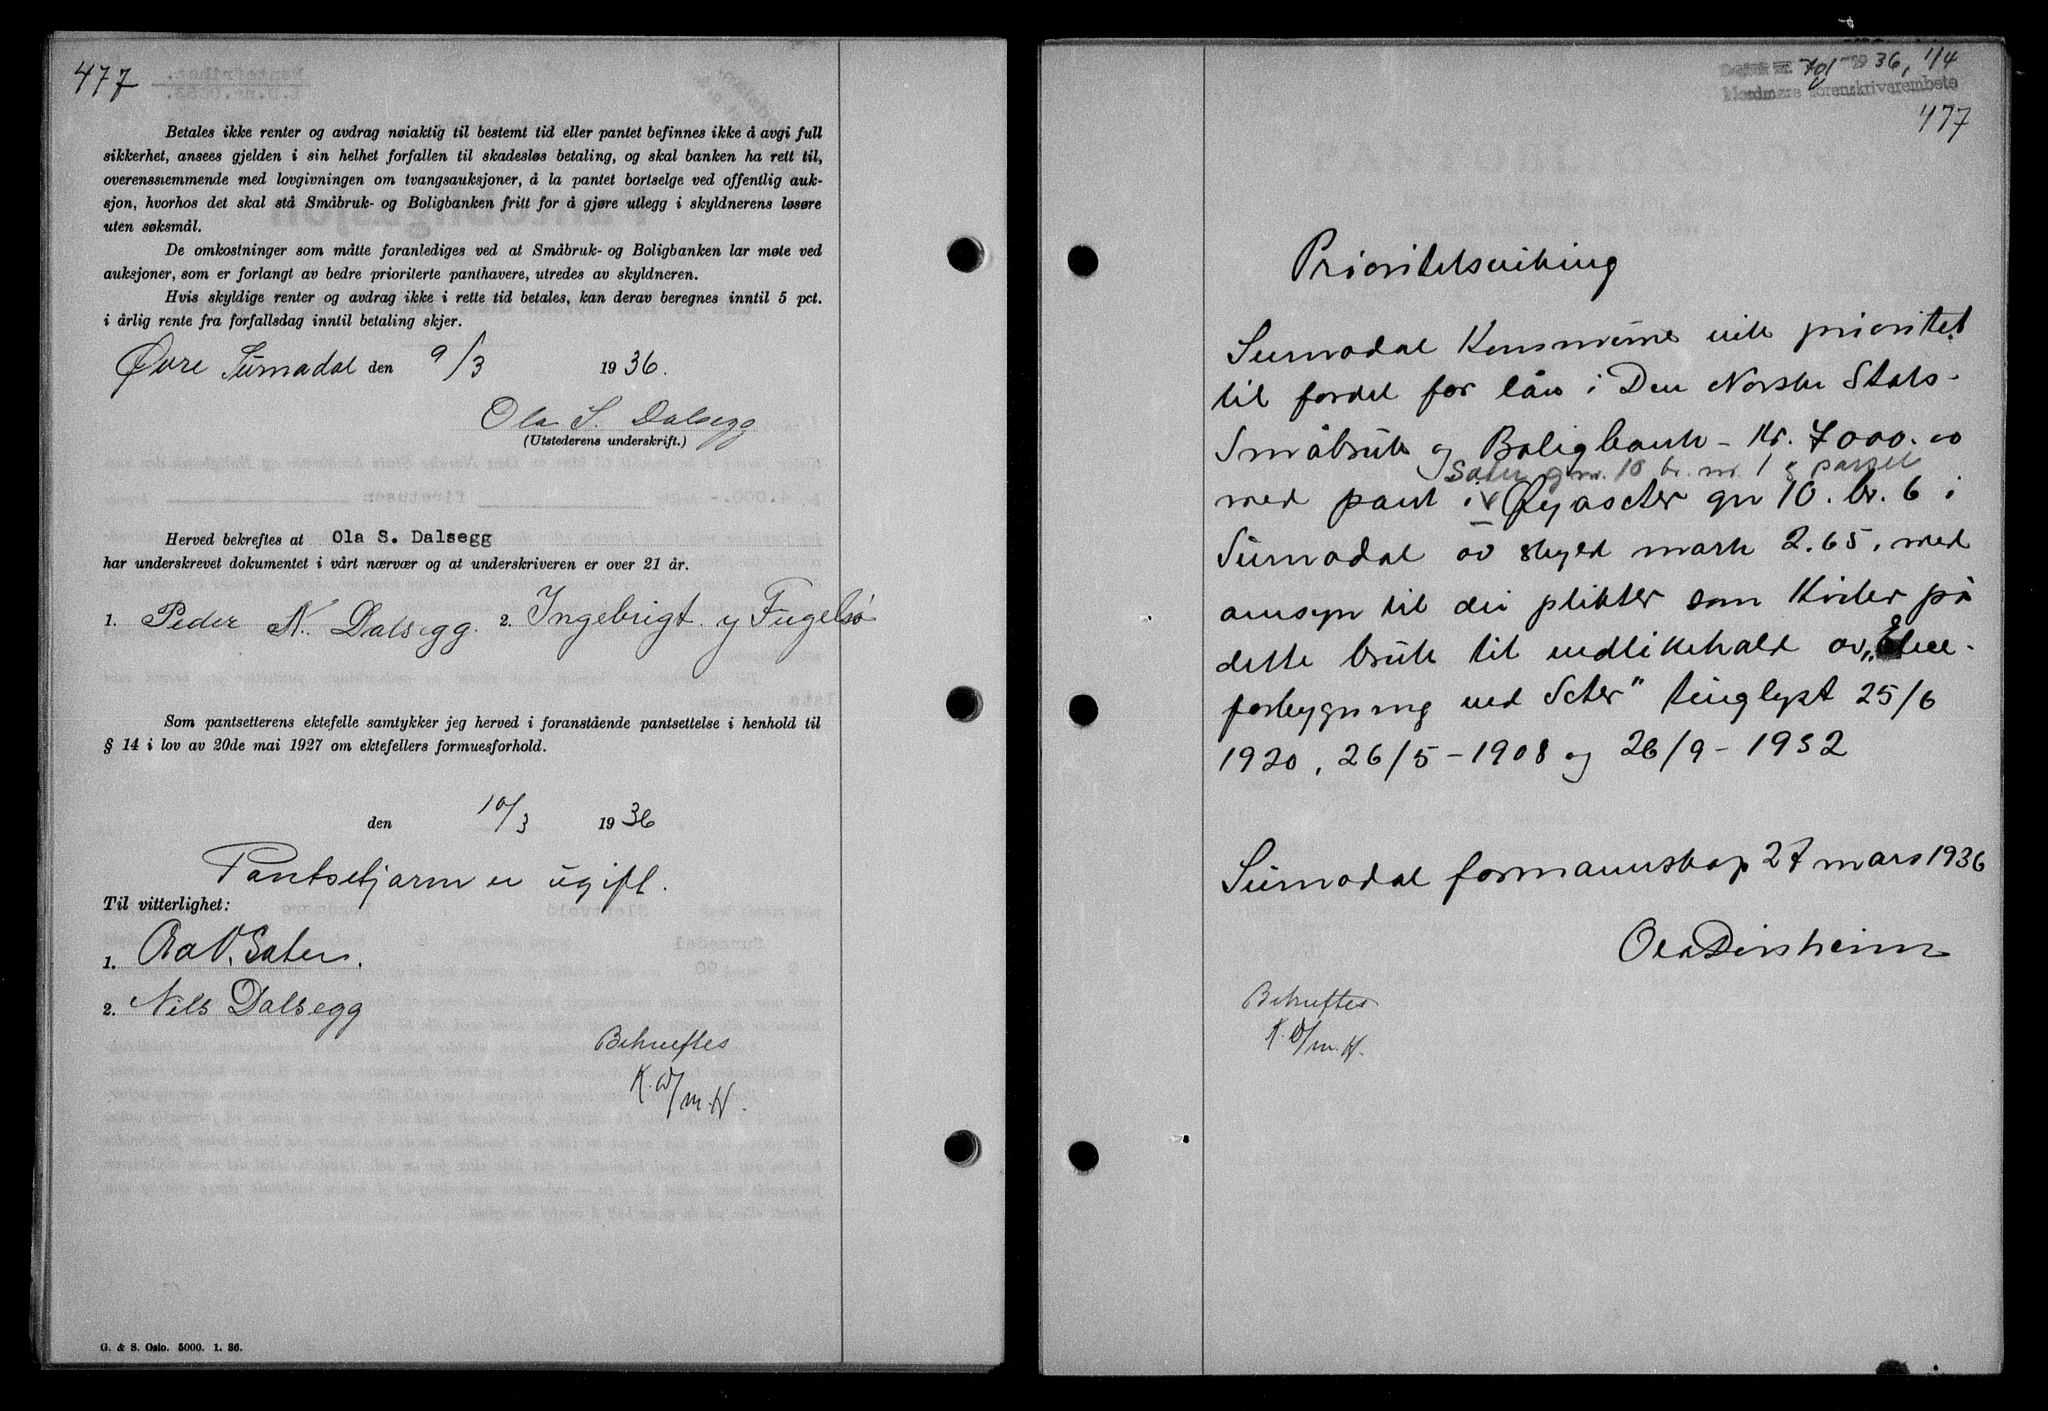 477
Betales ikke renter og avdrag nøiaktig til bestemt tid eller pantet befinnes ikke å avgi full
sikkerhet, ansees gjelden i sin helhet forfallen til skadesløs betaling, og skal banken ha rett til,
overensstemmende med lovgivningen om tvangsauksjoner, å la pantet bortselge ved offentlig auk-
sjon, hvorhos det skal stå Småbruk- og Boligbanken fritt for å gjøre utlegg i skyldnerens løsøre
uten søksmål.
De omkostninger som måtte foranlediges ved at Småbruk- og Boligbanken lar møte ved
auksjoner, som er forlangt av bedre prioriterte panthavere, utredes av skyldneren.
Hvis skyldige renter og avdrag ikke i rette tid betales, kan derav beregnes inntil 5 pct.
i årlig rente fra forfallsdag inntil betaling skjer.
Øvre Surnadal den 9/3 1936.
Ola S. Dalsegg
(Utstederens underskrift.)
Herved bekreftes at Ola S. Dalsegg
har underskrevet dokumentet i vårt nærvær og at underskriveren er over 21 år.
1. Peder N. Dalsegg. 2. Ingebrigt y Fugelsø
Som pantsetterens ektefelle samtykker jeg herved i foranstående pantsettelse i henhold til
§ 14 i lov av 20de mai 1927 om ektefellers formuesforhold.
den 10/3 1936
Pantsetjarn er ugift.
Til vitterlighet:
1. Ola V. Sæter.
2. Nils Dalsegg
Bekreftes
K. W/m. H.
G. & S. Oslo. 5000. 1. 36.
Dagbok nr. 701 1936, 1/4
Nordmøre sorenskriverembete
477
Prioritetsviking
Surnadal Kommune vik prioritet
til fordel for lån i Den Norske Stats-
Småbruk og Boligbank - Kr. 7000.00
Sæter gnr. 10 br. nr. 1 & parsel
med pant i Øyasæter gn 10. br. 6 i
Surnadal av skyld mark 2.65, med
omsyn til dei plikter som kviler på
dette bruk til vedlikehald av „Elve-
forbygning ved Sæter" tinglyst 25/6
1920, 26/5 - 1908 og 26/9 - 1932
Surnadal formannskap 27 mars 1936
Ola
Bekreftes
K. W/m. H.